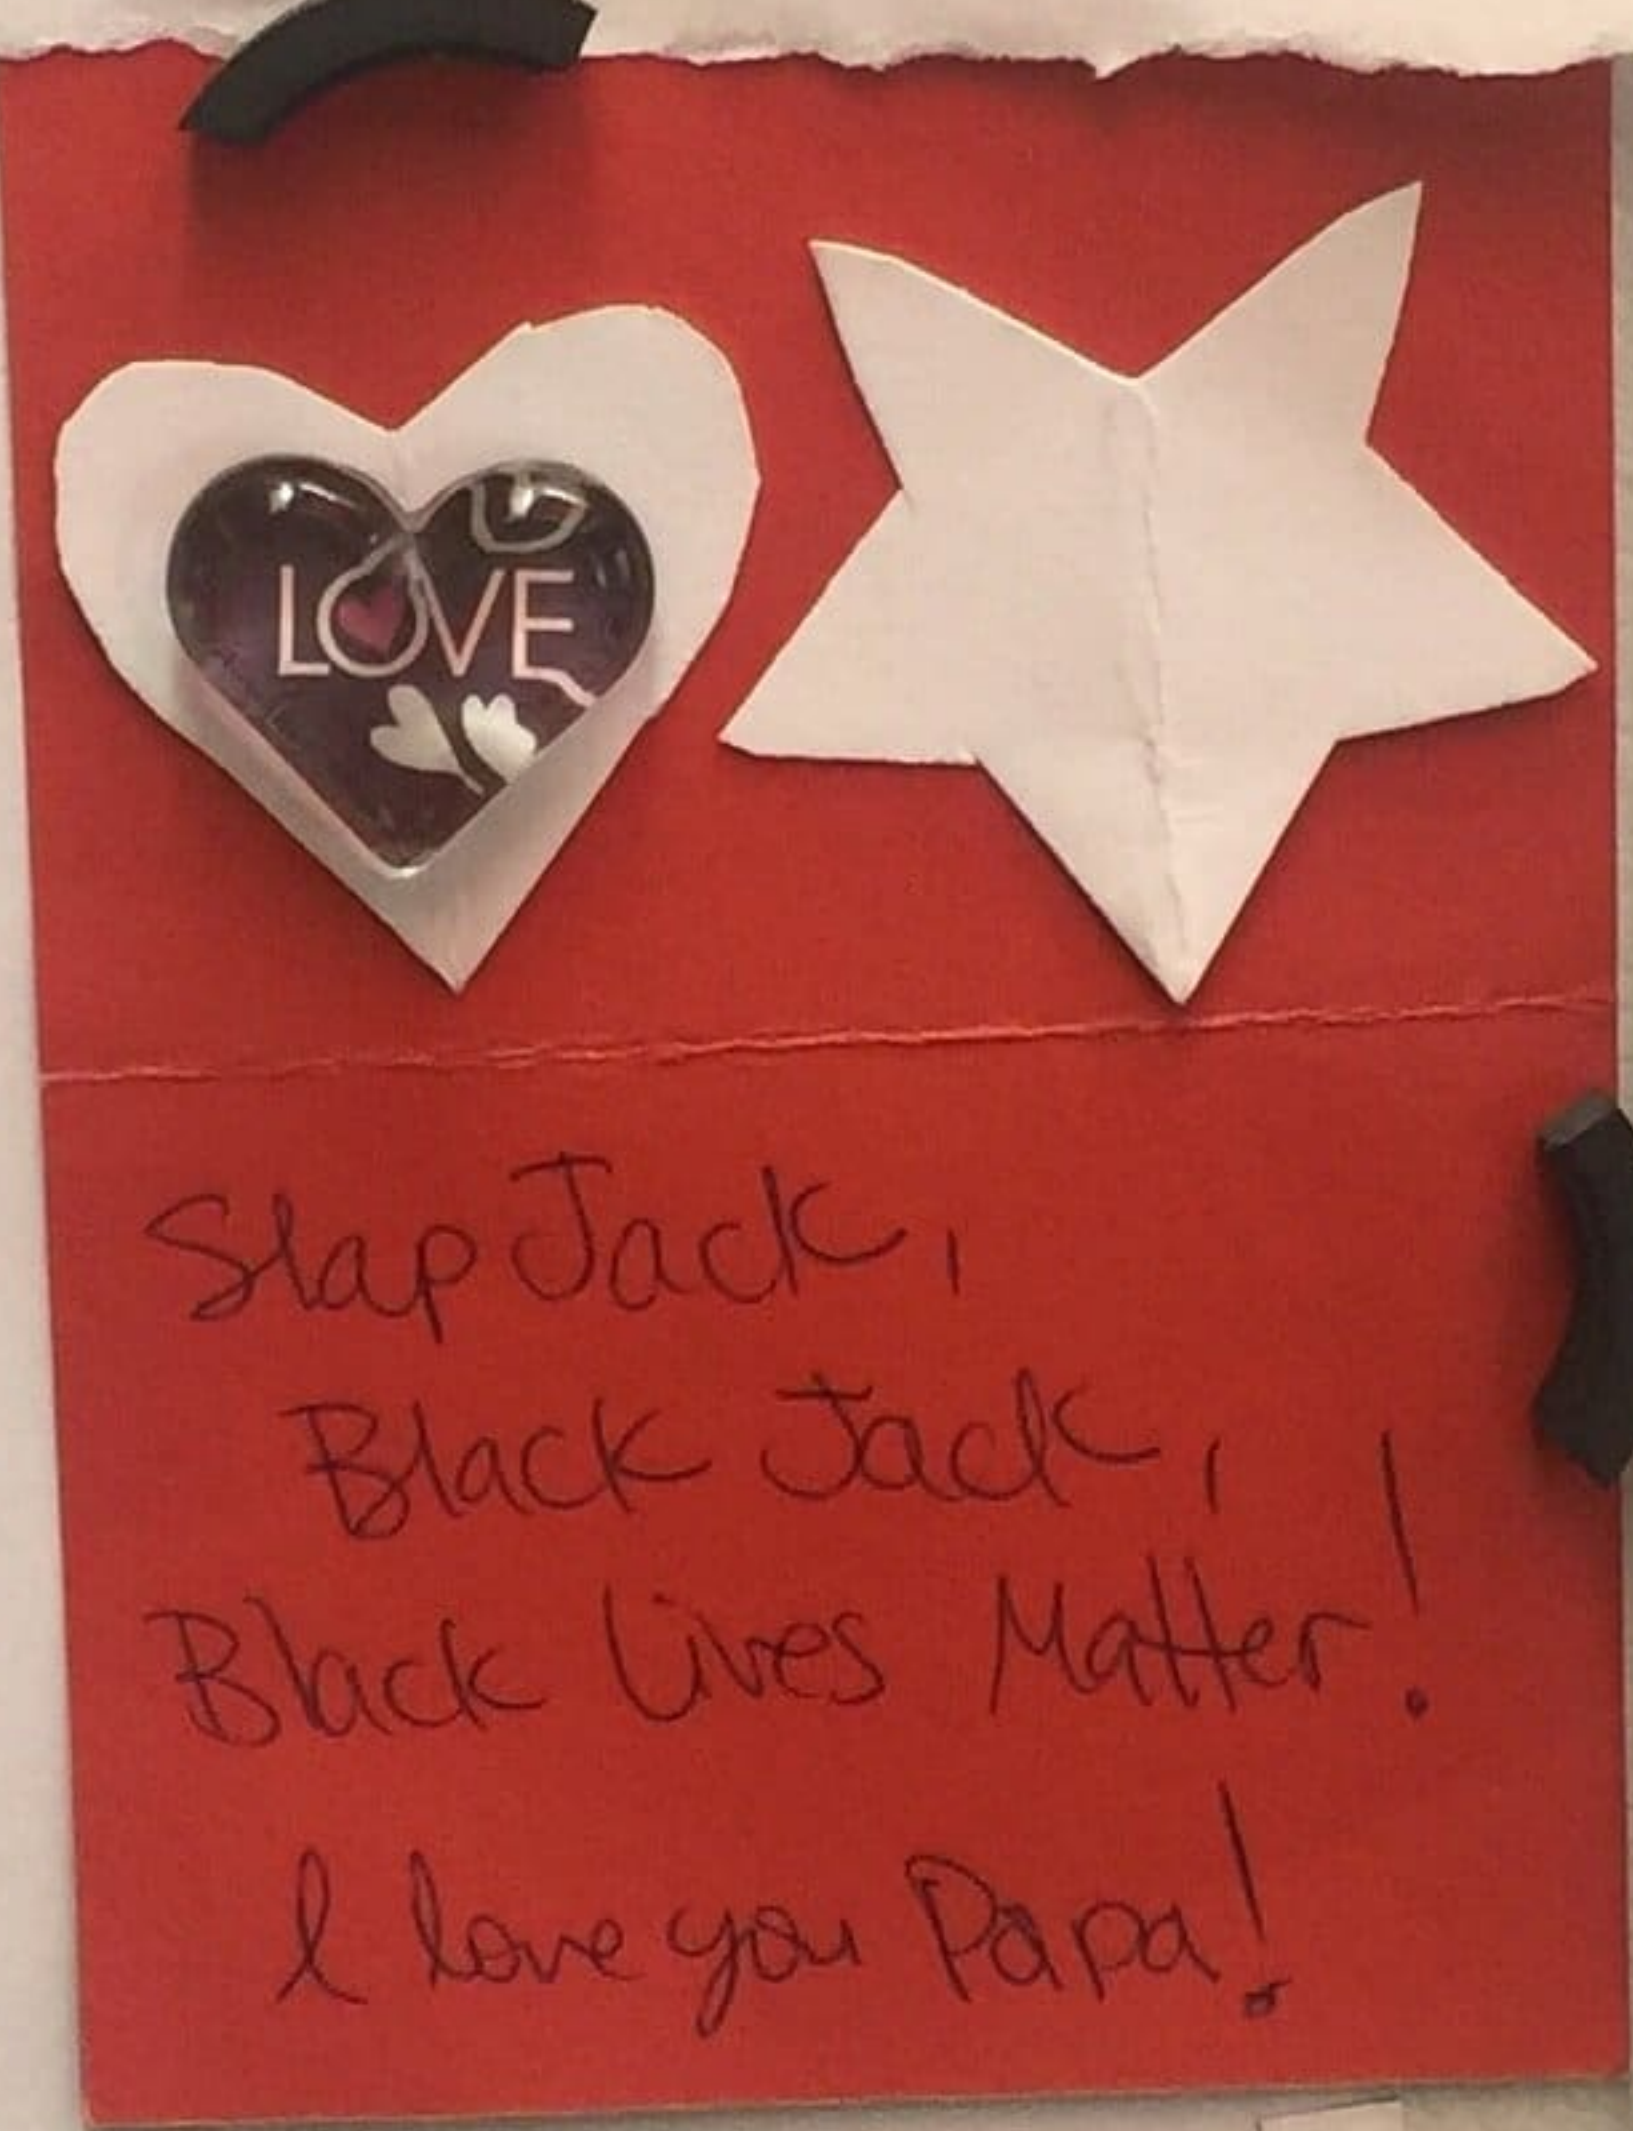 LOVE
Slap Jack,
Black Jack,
Black Lives Matter!
I love you Papa!